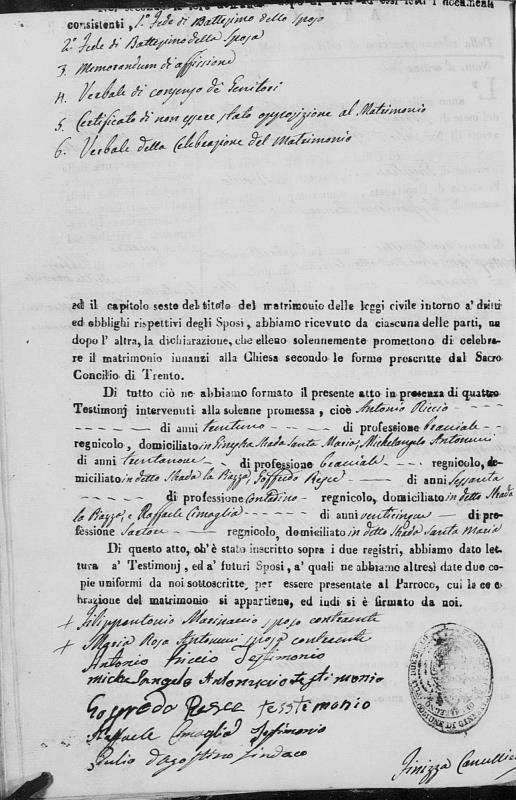 consistenti, 1.° Fede di Battesimo dello Sposo
2.° Fede di Battesimo della Sposa
3. Memorandum di affissione
4. Verbale di consenso de' Genitori
5. Certificato di non essere stato opposizione al Matrimonio
6. Verbale della Celebrazione del Matrimonio
ed il capitolo sesto del titolo del matrimonio delle leggi civile intorno a' dritti
ed obblighi rispettivi degli Sposi, abbiamo ricevuto da ciascuna delle parti, una
dopo l' altra, la dichiarazione, che elleno solennemente promettono di celebra-
re il matrimonio innanzi alla Chiesa secondo le forme prescritte dal Sacro
Concilio di Trento.
Di tutto ciò ne abbiamo formato il presente atto in presenza di quattro
Testimonj intervenuti alla solenne promessa, cioè Antonio Riccio
di anni trentuno di professione bracciale
regnicolo, domiciliato in Strada Santa Maria, Michelangelo Antonucci
di anni trentanove di professione bracciale regnicolo, do-
miciliato in detto Strada la Piazza, Goffredo Pesce di anni sessanta
di professione contadino regnicolo, domiciliato in detto Strada
la Piazza, e Raffaele di anni venticinque di pro-
fessione Sartore regnicolo, domiciliato in detto Strada Santa Maria
Di questo atto, ch'è stato inscritto sopra i due registri, abbiamo dato let-
tura a' Testimonj, ed a' futuri Sposi, a' quali ne abbiamo altresì date due co-
pie uniformi da noi sottoscritte, per essere presentate al Parroco, cui la ce e-
brazione del matrimonio si appartiene, ed indi si è firmato da noi.
+ Filippantonio Marinaccio sposo contraente
+ Maria Rosa Antonucci sposa contraente
Antonio Riccio Testimonio
Michelangelo Antonuccio testimonio
Gofredo Pesce testimonio
Raffaele Testimonio
Giulio d'Agostino Sindaco